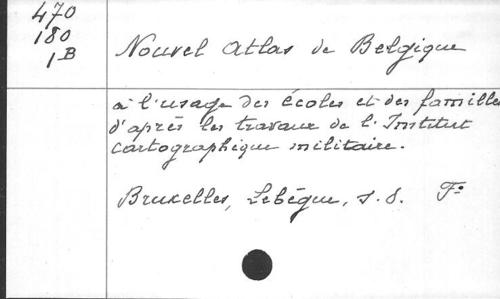 470
180
1B
Nouvel Atlas de Belgique
à l'usage des écoles et des familles
d'après les travaux de l'Institut
cartographique militaire.
Bruxelles, Lebègue, s.d. F°